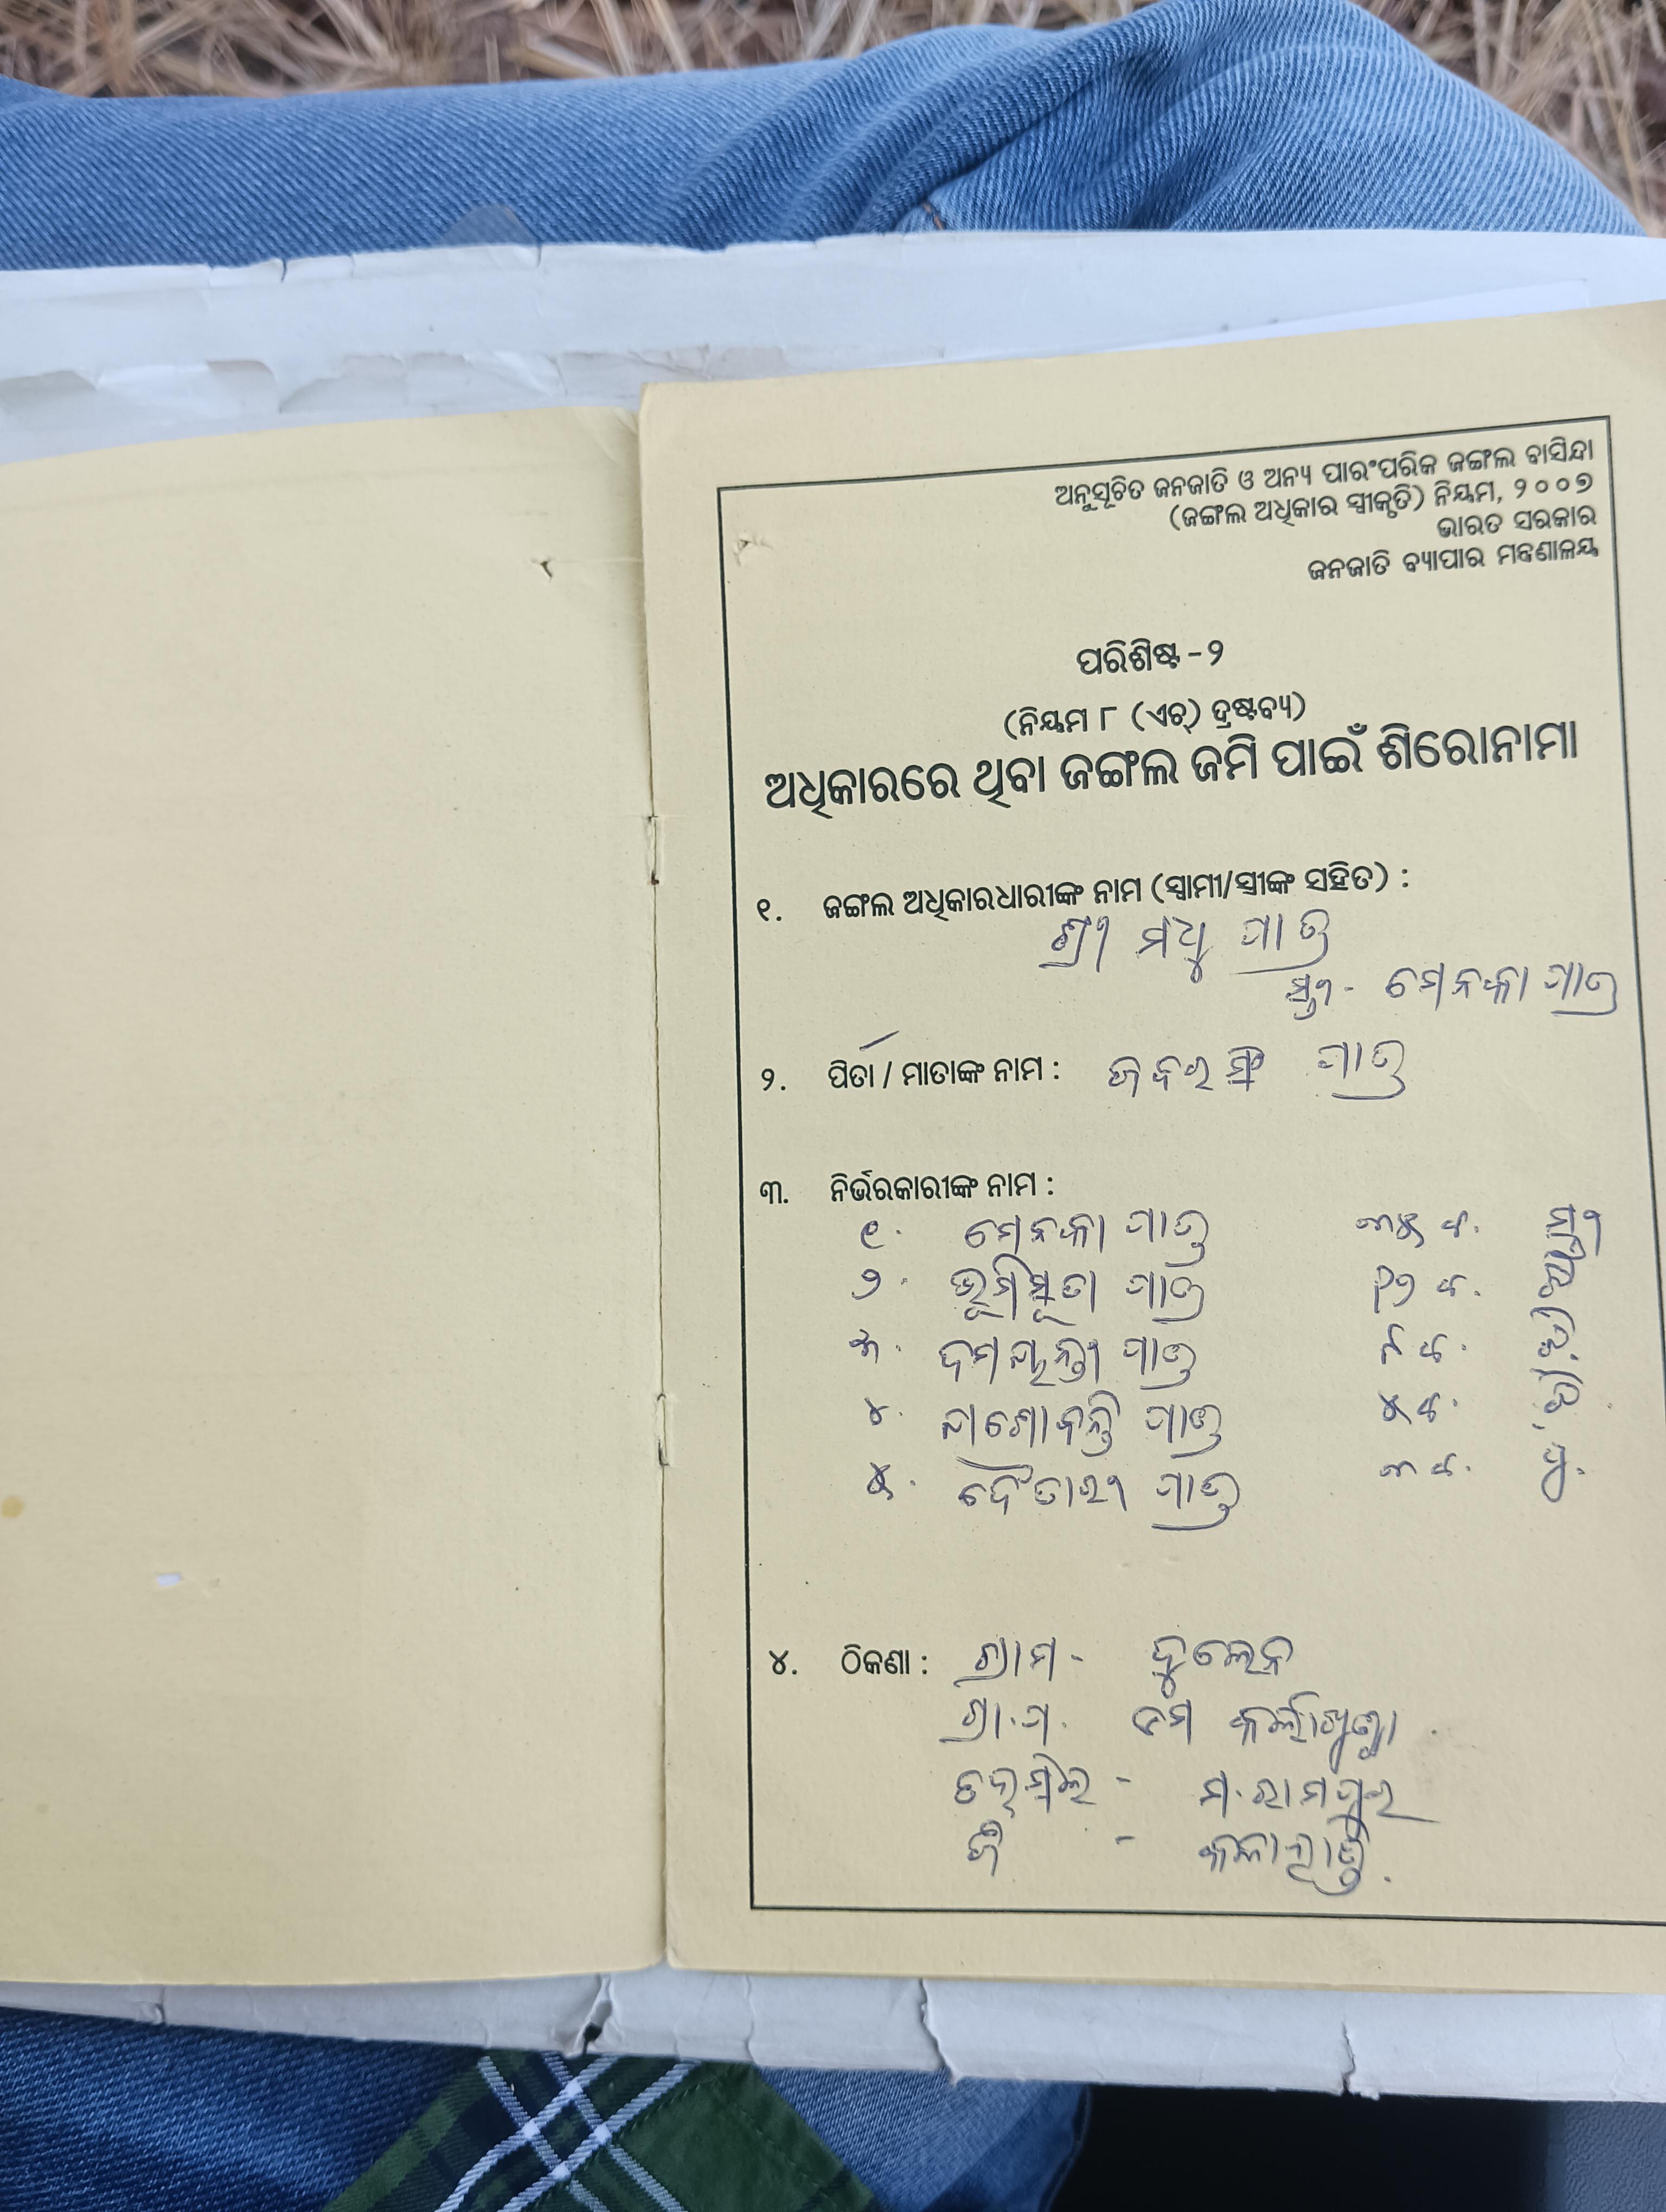 ଅନୁସୂଚିତ ଜନଜାତି ଓ ଅନ୍ୟ ପାରଂପରିକ ଜଙ୍ଗଲ ବାସିନ୍ଦା
(ଜଙ୍ଗଲ ଅଧିକାର ସ୍ୱୀକୃତି) ନିୟମ, ୨୦୦୭
ଭାରତ ସରକାର
ଜନଜାତି ବ୍ୟାପାର ମନ୍ତ୍ରଣାଳୟ
ପରିଶିଷ୍ଟ - ୨
(ନିୟମ ୮ (ଏଚ୍) ଦ୍ରଷ୍ଟବ୍ୟ)
ଅଧିକାରରେ ଥିବା ଜଙ୍ଗଲ ଜମି ପାଇଁ ଶିରୋନାମା
୧. ଜଙ୍ଗଲ ଅଧିକାରଧାରୀଙ୍କ ନାମ (ସ୍ୱାମୀ/ସ୍ତ୍ରୀଙ୍କ ସହିତ) :
ଶ୍ରୀ ମଧୁ ଗାଡ
ସ୍ତ୍ରୀ - ମେନକା ଗାଡ
୨. ପିତା / ମାତାଙ୍କ ନାମ : ଗାଡ
୩. ନିର୍ଭରକାରୀଙ୍କ ନାମ :
୧. ମେନକା ଗାଡ ୩୫ ବ. ସ୍ତ୍ରୀ
୨. ଭୂମିସୂତା ଗାଡ ୧୨ ବ. ଝି
୩. ଦମୟନ୍ତୀ ଗାଡ ବ. ଝି.
୪. ଯଶୋବନ୍ତି ଗାଡ ୫ ବ. ଝି.
୫. ଦୈତାରୀ ଗାଡ ୩ ବ. ପୁ.
୪. ଠିକଣା : ଗ୍ରାମ - ଦୁଲେନ
ଗ୍ରା.ପ.
ତହସିଲ - ମ.ରାମପୁର
ଜି - କଳାହାଣ୍ଡି.